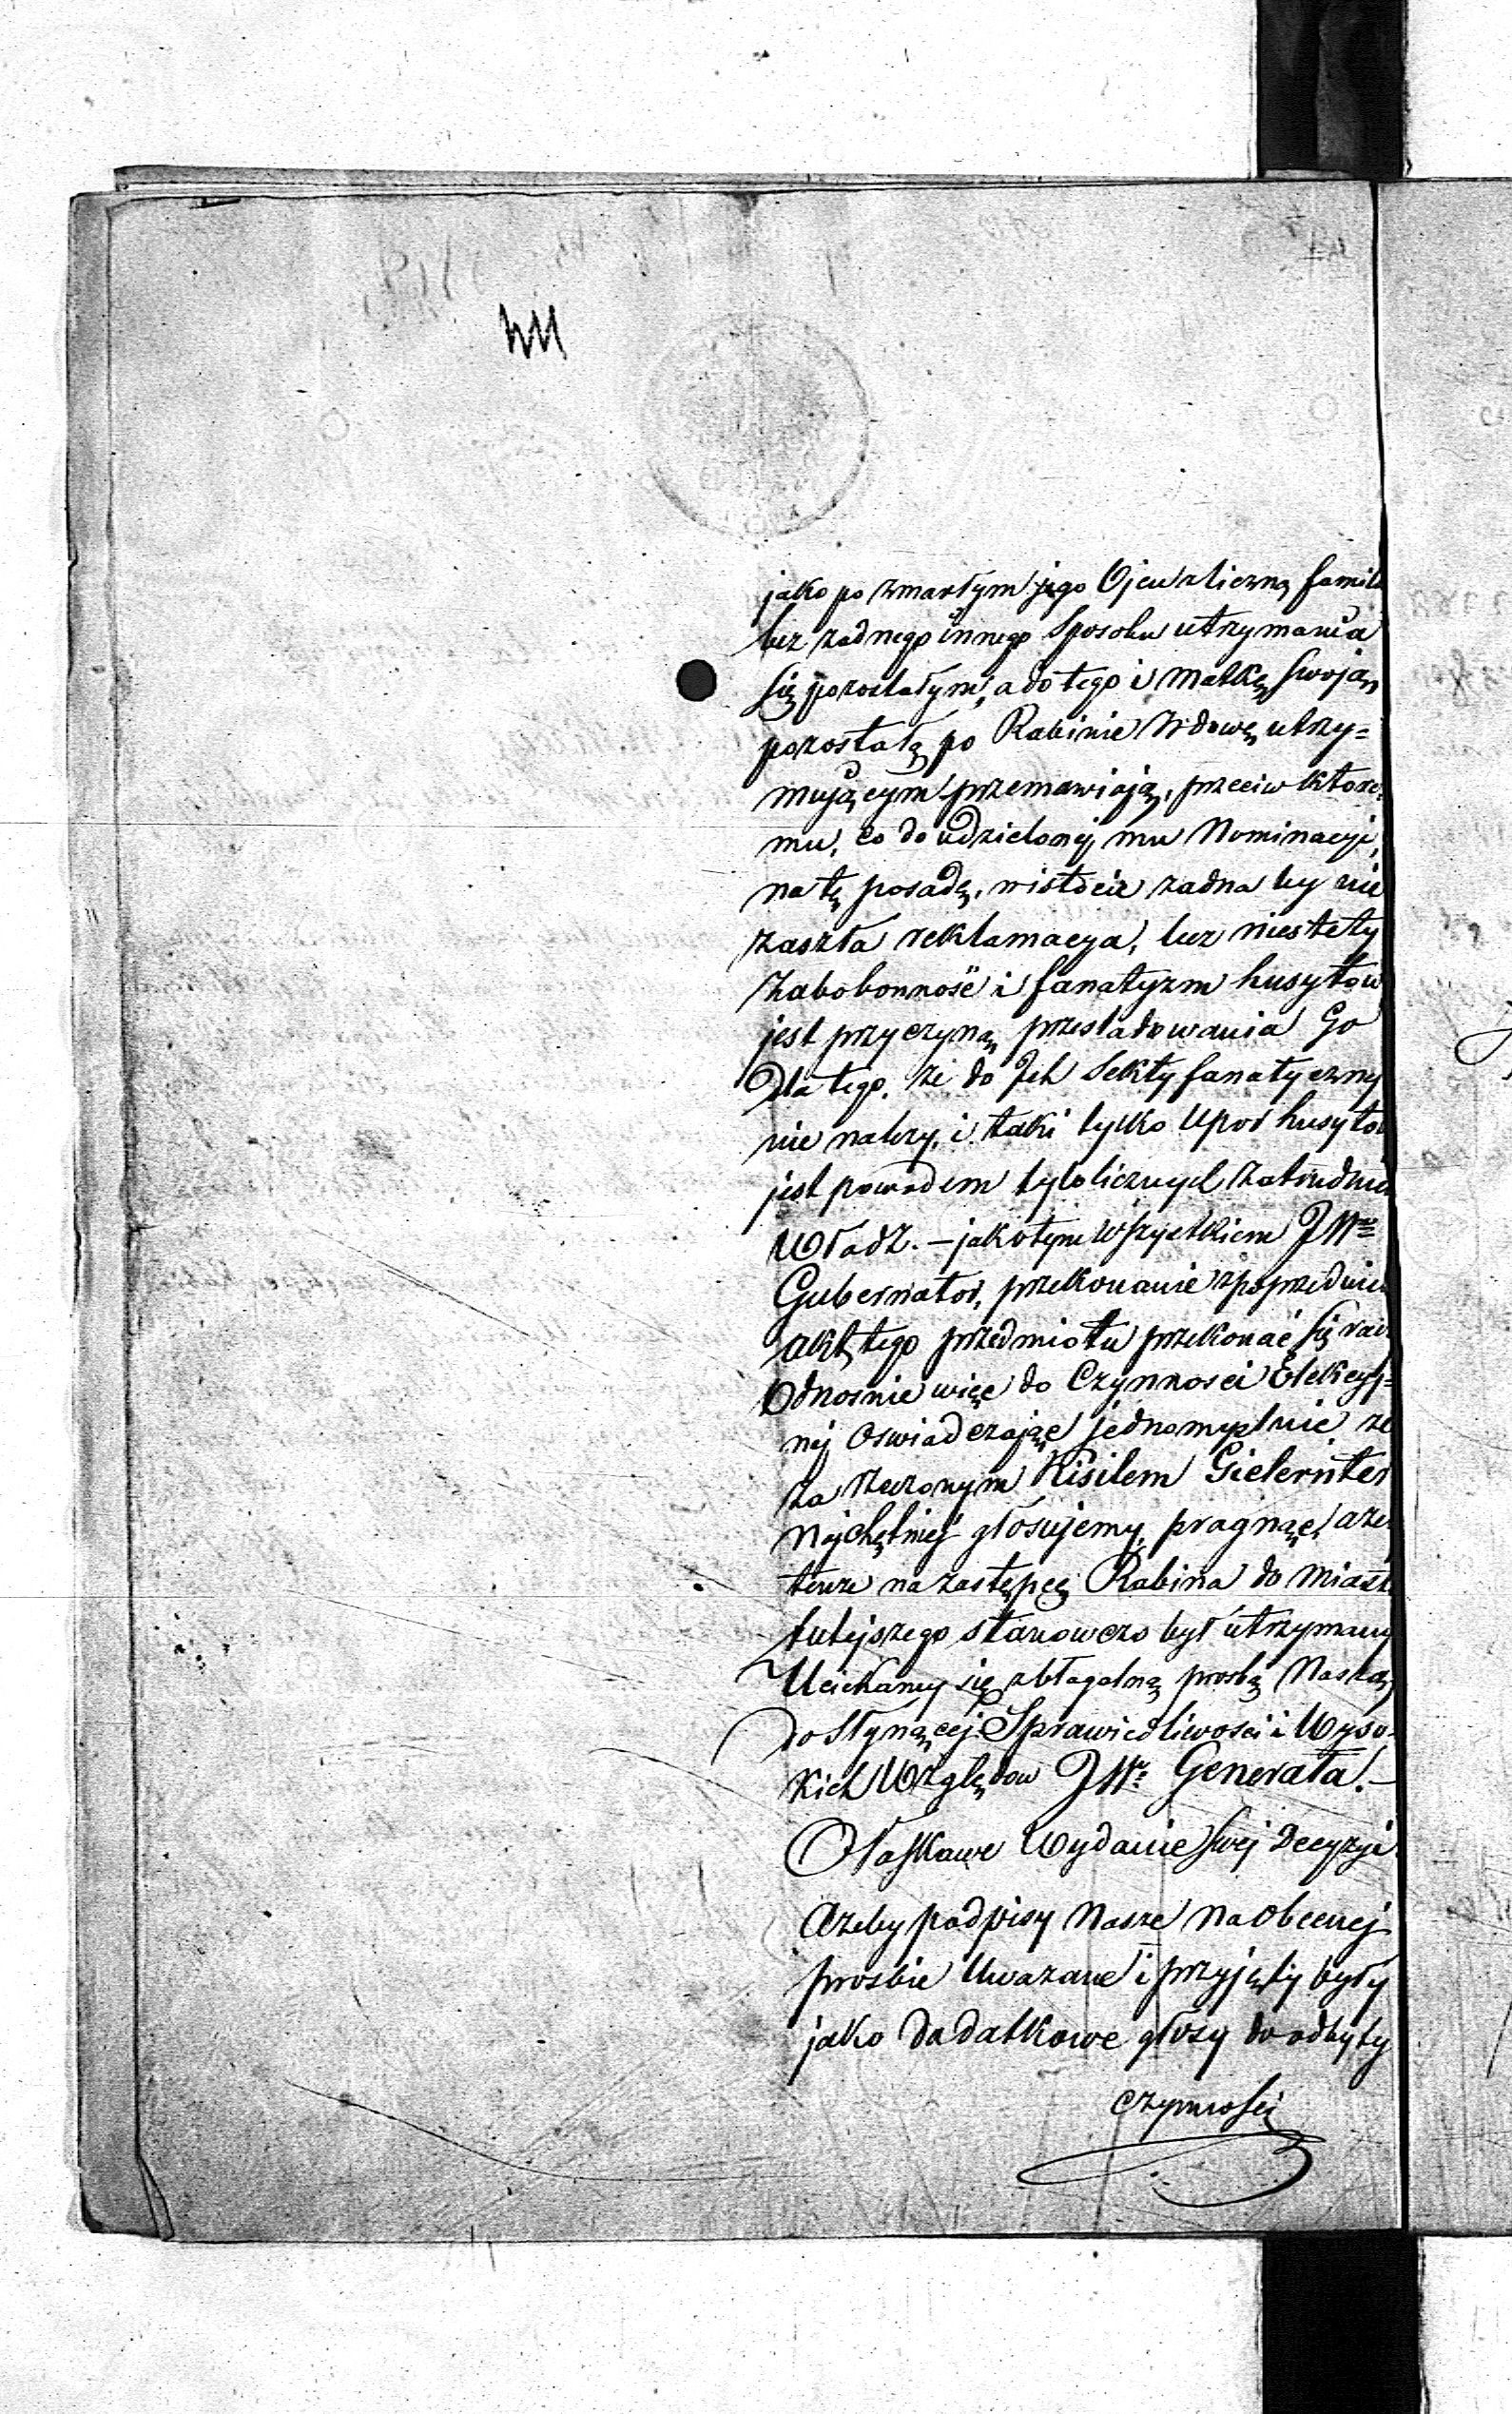 jako po zmarłym jego Ojcu z liczną famili
bez zadnego innego Sposobu utrzymania
się pozostałym, a do tego i matkę swoją,
pozostałą po Rabinie Wdowę utrzy=
mującym przemawiają, przeciw które
mu, co do udzielonej mu Nominacyi,
na tę posadę, w istocie zadna by nie
zaszła reklamacya, lecz niestety
Zabobonność i fanatyzm husytów
jest przyczyną przesladowania Go
Dla tego, ze do Ich Sekty fanatyczny
nie nalezy, i taki tylko Upor husytow
jest powodem tylolicznych zatrudnien
Władz. – jak o tym wszystkiem JW
Gubernator, przekonanie z poprzednich
akt tego przedmiotu przekonać się racz
Odnosnie więc do Czynnosci Elekcyj=
nej oswiadczając jednomyslnie ze
za rzeczonym Kisilem Gielernter
najchętniej głosujemy, pragnąc, aze
tenze na zastępcę Rabina do miasta
tutejszego stanowczo był utrzymany
Uciekamy się z błagalną prosbą Naszą,
do Słynącej Sprawiedliwosci i Wyso-
kich Względow JW. Generała. –
O łaskawe Wydanie swej Decyzyi
Azeby podpisy Nasze na obecnej
prosbie Uwazane i przyjęty były
jako dodatkowe głosy do odbyty
czynnosci